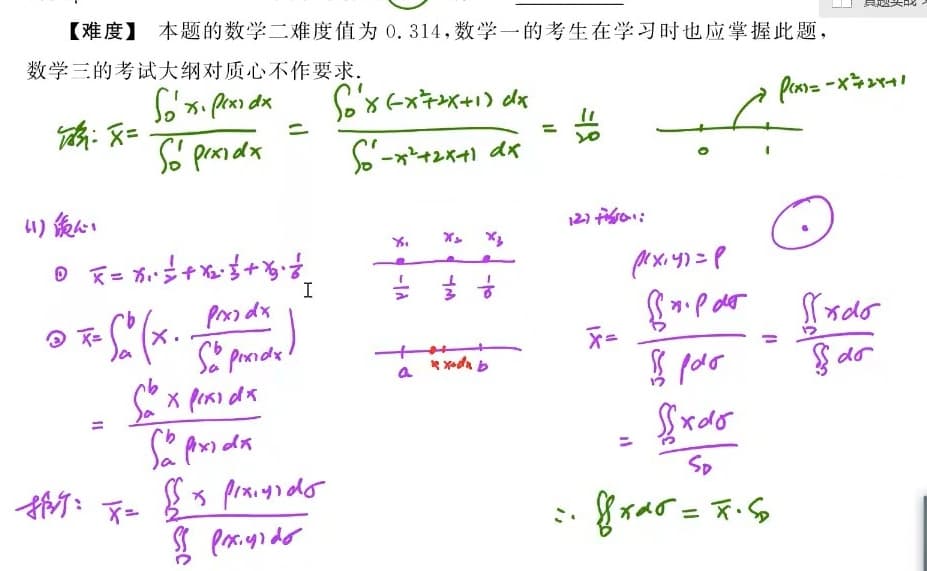 【难度】 本题的数学二难度值为 0.314,数学一的考生在学习时也应掌握此题,
数学三的考试大纲对质心不作要求.
x̄ = ∫₀¹ x·ρ(x)dx / ∫₀¹ ρ(x)dx = ∫₀¹ x(-x²+2x+1) dx / ∫₀¹ -x²+2x+1 dx = 11/20
ρ(x)=-x²+2x+1
0 1
(1) 质心:
① x̄ = x₁·1/2 + x₂·1/3 + x₃·1/6
x₁ x₂ x₃
1/2 1/3 1/6
② x̄ = ∫ₐᵇ (x· ρ(x)dx / ∫ₐᵇ ρ(x)dx)
a x x+dx b
= ∫ₐᵇ x ρ(x)dx / ∫ₐᵇ ρ(x)dx
推广: x̄ = ∬_D x ρ(x,y)dσ / ∬_D ρ(x,y)dσ
(2) 形心:
ρ(x,y)=ρ
x̄ = ∬_D x·ρdσ / ∬_D ρdσ = ∬_D xdσ / ∬_D dσ
= ∬_D xdσ / S_D
∴ ∬_D xdσ = x̄·S_D